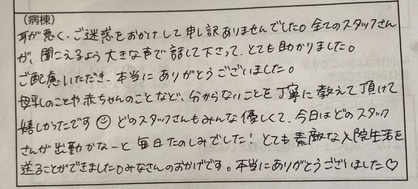 (病棟)
耳が悪く、ご迷惑をおかけして申し訳ありませんでした。全てのスタッフさん
が、聞こえるよう大きな声で話して下さって、とても助かりました。
ご配慮いただき、本当にありがとうございました。
母乳のことや赤ちゃんのことなど、分からないことを丁寧に教えて頂けて
嬉しかったです☺ どのスタッフさんもみんな優しくて、今日はどのスタッフ
さんが出勤かなーと毎日たのしみでした！とても素敵な入院生活を
送ることができました。みなさんのおかげです。本当にありがとうございました♡